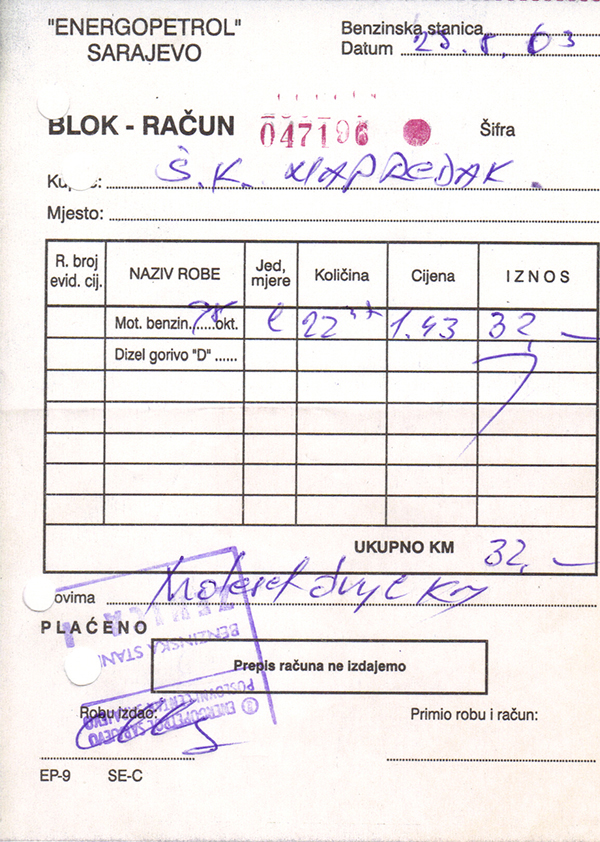 "ENERGOPETROL" Benzinska stanica
SARAJEVO Datum 25.8.03
BLOK - RAČUN 047196 Šifra
Š.K. NAPREDAK
Mjesto:
R. broj evid. cij. NAZIV ROBE Jed, mjere Količina Cijena IZNOS
Mot. benzin 98 okt. l 22 37 1.43 32,—
Dizel gorivo "D" ......
UKUPNO KM 32,—
ovima
PLAĆENO
ZENICA 1
BENZINSKA STANI
Prepis računa ne izdajemo
POSLOVNI CENTAR SARAJEVO
ENERGOPETROL SARAJEVO
Robu izdao: Primio robu i račun:
EP-9 SE-C